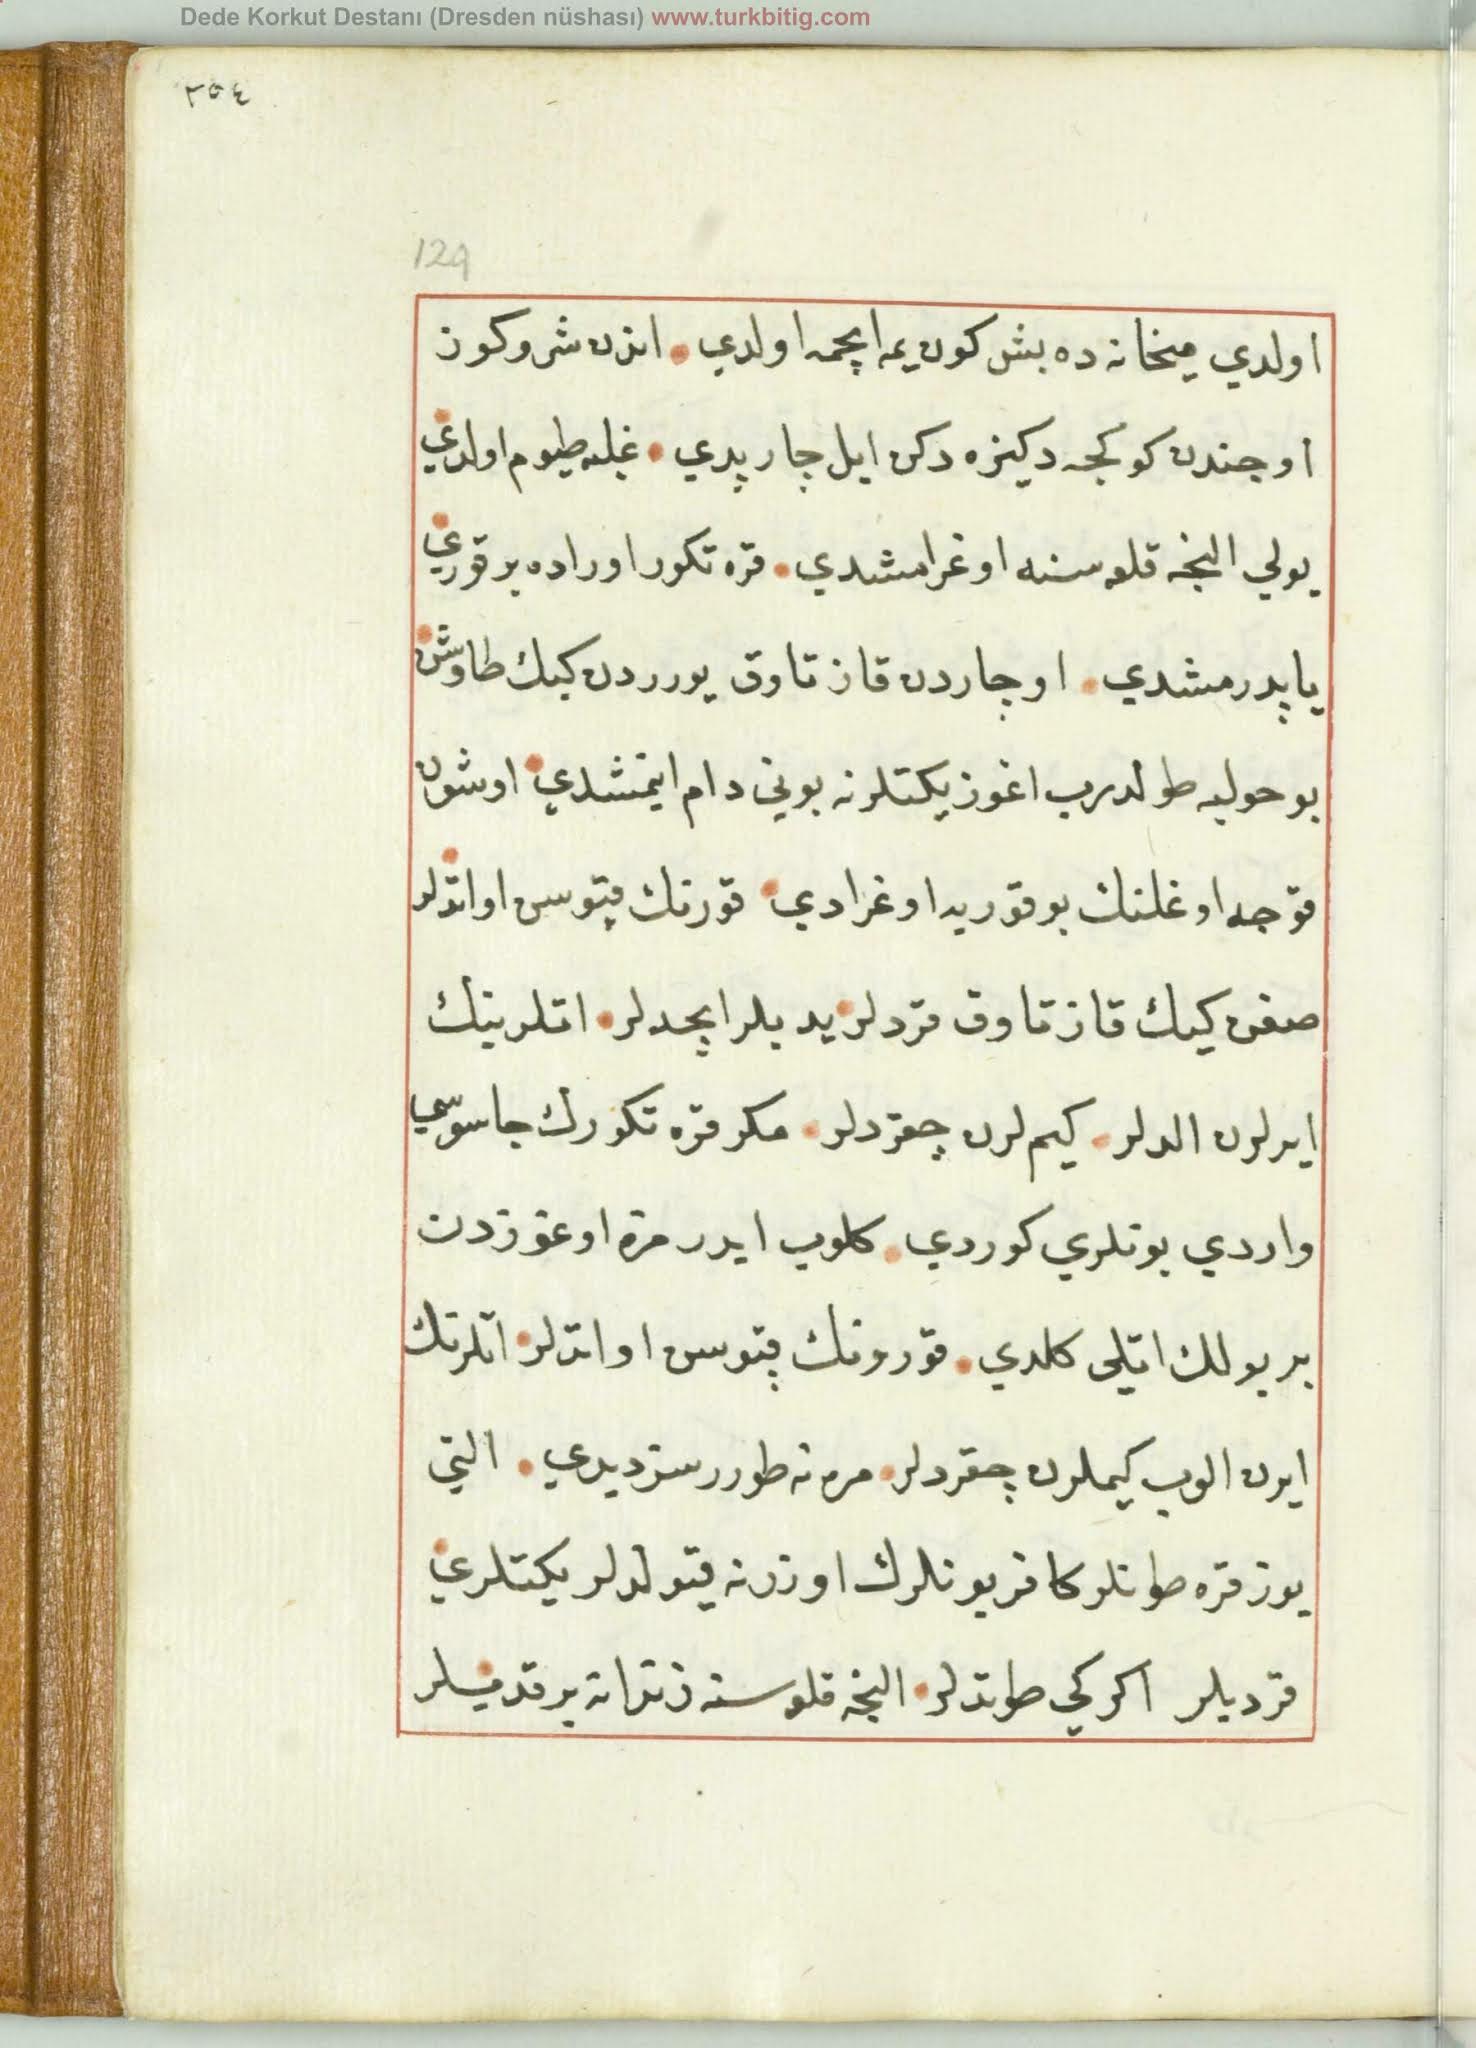 Dede Korkut Destanı (Dresden nüshası) www.turkbitig.com
٢٥٤
129
اولدي ميخانه ده بش كون يمه ايچمه اولدي . اندن شروكوز
اوجندن كوكجه دكيزه دكن ايل چارپدي . غلبه طيوم اولدي
يولي النجه قلعه سنه اوغرامشدي . قره تكور اوراده بر قوري
ياپدرمشدي . اوچاردن قاز تاوق يورردن كيك طاوشن
بو حوليه طولدرب اغوز يكتلرنه بوني دام ايتمشدي . اوشون
قوجه اوغلنك بو قوريه اوغرادي . قورنك قپوسن اواتدلر
صغن كيك قاز تاوق قردلر يديلر ايچدلر . اتلرينك
ايرلرن الدلر . كيم لرن چقردلر . مكر قره تكورك جاسوسي
واردي بونلري كوردي . كلوب ايدر مره اوغوزدن
بر بولك اتلى كلدي . قورونك قپوسن اواتدلر . اتلرنك
ايرن الوب كيملرن چقردلر . مره نه طوررسز ديدي . التي
يوز قره طونلو كافر بونلرك اوزرنه قيولدلر يكتلري
قرديلر اكركي طوتدلر . النجه قلعه سنه زندانه برقديلر